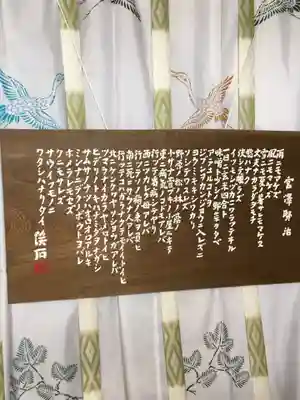 宮澤賢治
雨ニモマケズ
風ニモマケズ
雪ニモ夏ノ暑サニモマケズ
丈夫ナカラダヲモチ
慾ハナク
決シテ瞋ラズ
イツモシヅカニワラッテヰル
一日ニ玄米四合ト
味噌ト少シノ野菜ヲタベ
アラユルコトヲ
ジブンヲカンジョウニ入レズニ
ヨクミキキシワカリ
ソシテワスレズ
野原ノ松ノ林ノ蔭ノ
小サナ萱ブキノ小屋ニヰテ
東ニ病気ノコドモアレバ
行ッテ看病シテヤリ
西ニツカレタ母アレバ
行ッテソノ稲ノ束ヲ負ヒ
南ニ死ニサウナ人アレバ
行ッテコハガラナクテモイイトイヒ
北ニケンクヮヤソショウガアレバ
ツマラナイカラヤメロトイヒ
ヒデリノトキハナミダヲナガシ
サムサノナツハオロオロアルキ
ミンナニデクノボウトヨバレ
ホメラレモセズ
クニモサレズ
サウイフモノニ
ワタシハナリタイ